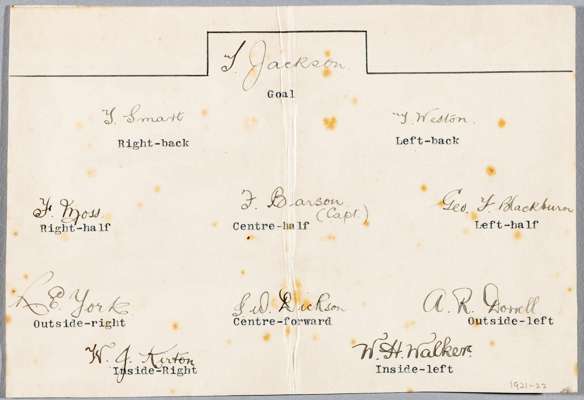 T. Jackson.
Goal
T. Smart
T. Weston.
Right-back
Left-back
F. Moss
F. Barson
(Capt.)
Geo. F Blackburn
Right-half
Centre-half
Left-half
R E York
I. W. Dickson
A. R. Dorrell
Outside-right
Centre-forward
Outside-left
W. J. Kirton
W. H. Walker.
Inside-Right
Inside-left
1921-22